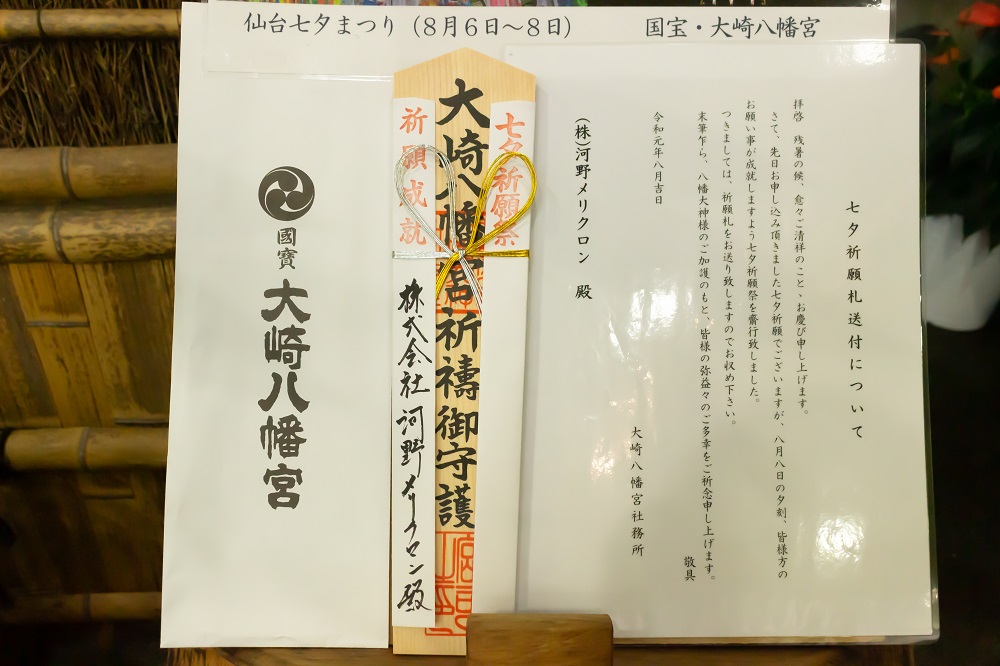 仙台七夕まつり（8月6日～8日）
国宝・大崎八幡宮
七夕祈願札送付について
拝啓　残暑の候、愈々ご清祥のこと、お慶び申し上げます。
さて、先日お申し込み頂きました七夕祈願でございますが、八月八日の夕刻、皆様方の
お願い事が成就しますよう七夕祈願祭を齋行致しました。
つきましては、祈願札をお送り致しますのでお収め下さい。
末筆乍ら、八幡大神様のご加護のもと、皆様の弥益々のご多幸をご祈念申し上げます。
敬具
令和元年八月吉日
大崎八幡宮社務所
(株)河野メリクロン　殿
七夕祈願祭
大崎八幡宮祈禱御守護
祈願成就
株式会社河野メリクロン殿
國寶
大崎八幡宮